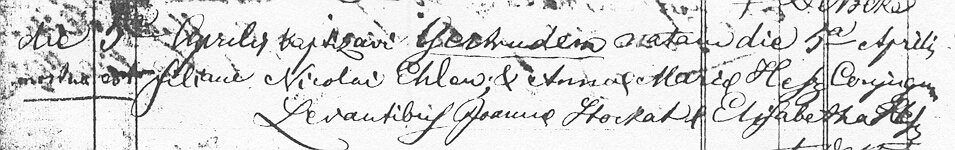 die 5ta Aprilis baptizavi Gertrudem natam die 5ta Aprilis
mortua est filiam Nicolai Ehlen, & Anna Maria Hess Conjugum
Levantibus Joanne Stockat & Elisabetha Hess